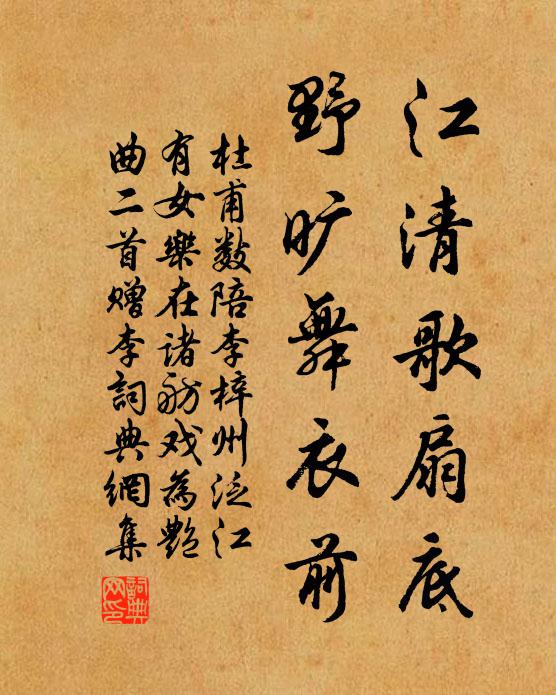 江清歌扇底
野旷舞衣前
杜甫数陪李梓州泛江
有女樂在诸舫戏為艷
曲二首赠李詞典網集
詞典网印